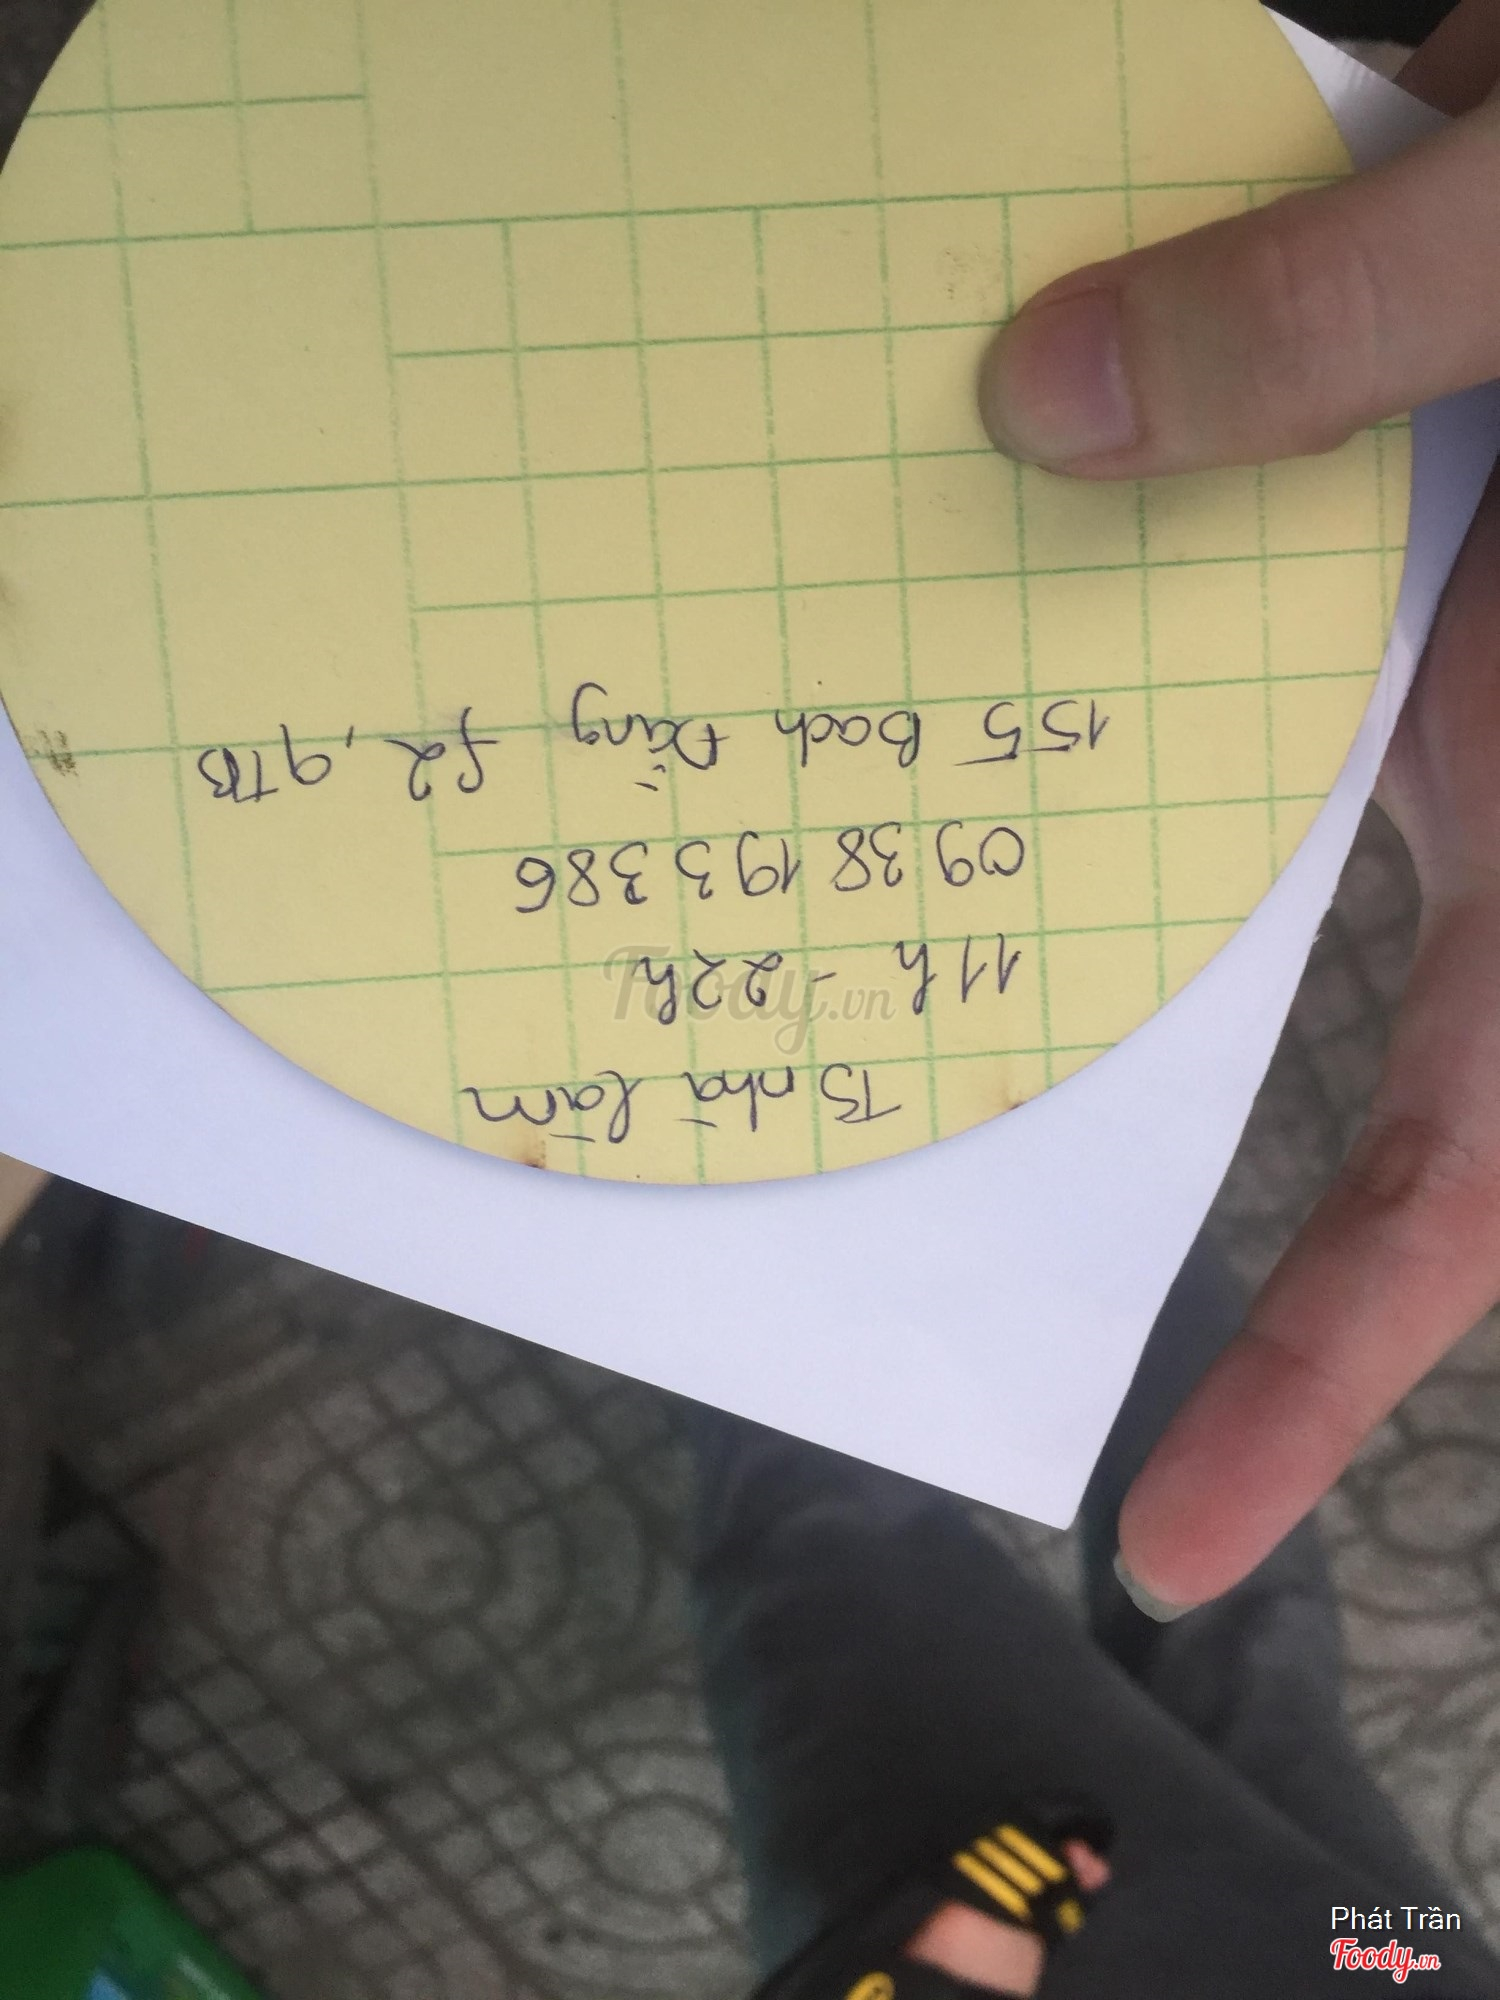 TS nhà làm
11h - 22h
0938 193 386
155 Bạch Đằng f2, qTB
Foody.vn
Phát Trần
Foody.vn